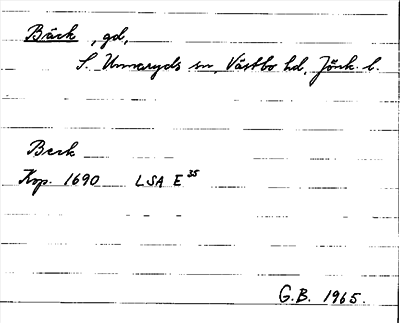 Bäck, gd,
S. Unnaryds sn, Västbo hd, Jönk. l.
Beck
Kop. 1690 LSA E 35
G.B. 1965.